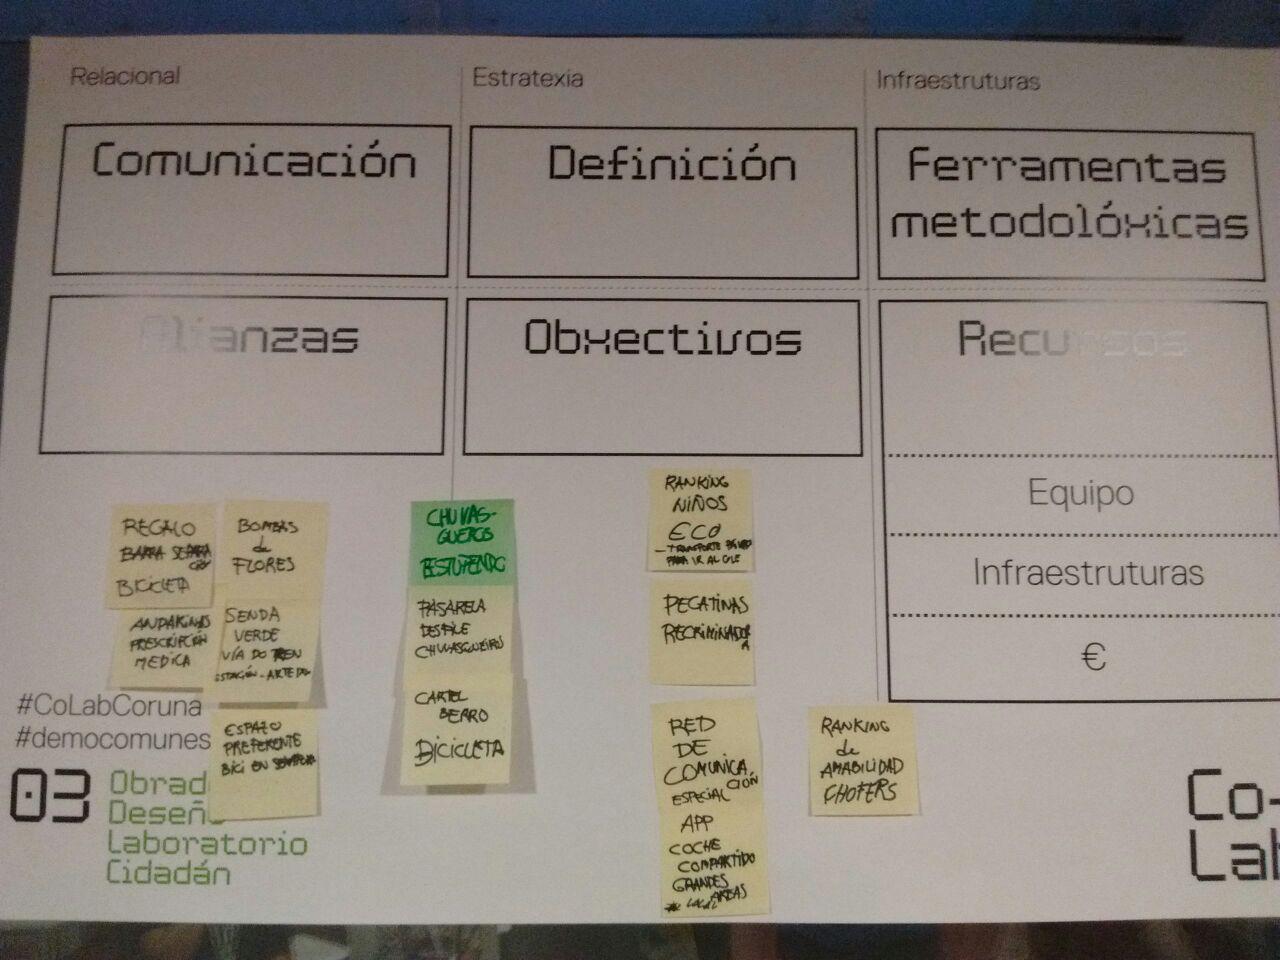 Relacional
Estratexia
Infraestruturas
Comunicación
Definición
Ferramentas
metodolóxicas
Alianzas
Obxectivos
Recursos
Equipo
Infraestruturas
€
REGALO
BARRA SEPARA
BICICLETA
BOMBAS
de
FLORES
ANDARINAS
PRESCRIPCIÓN
MEDICA
SENDA
VERDE
VÍA DO TREN
ESTACIÓN - ARTEDO
ESPAZO
PREFERENTE
BICI EN
CHUVAS-
QUEROS
ESTUPENDO
PASARELA
DESFILE
CHUVASQUEIRO
CARTEL
BERRO
BICICLETA
RANKING
NIÑOS
ECO
- TRANSPORTE
PARA IR AL COLE
PEGATINAS
RECRIMINADOR
A
RED
DE
COMUNICA
CIÓN
ESPECIAL
APP
COCHE
COMPARTIDO
GRANDES
ÁREAS
LOCAL
RANKING
de
AMABILIDAD
CHOFERS
#CoLabCoruna
#democomunes
03
Obrad
Deseñ
Laboratorio
Cidadán
Co-
Lab